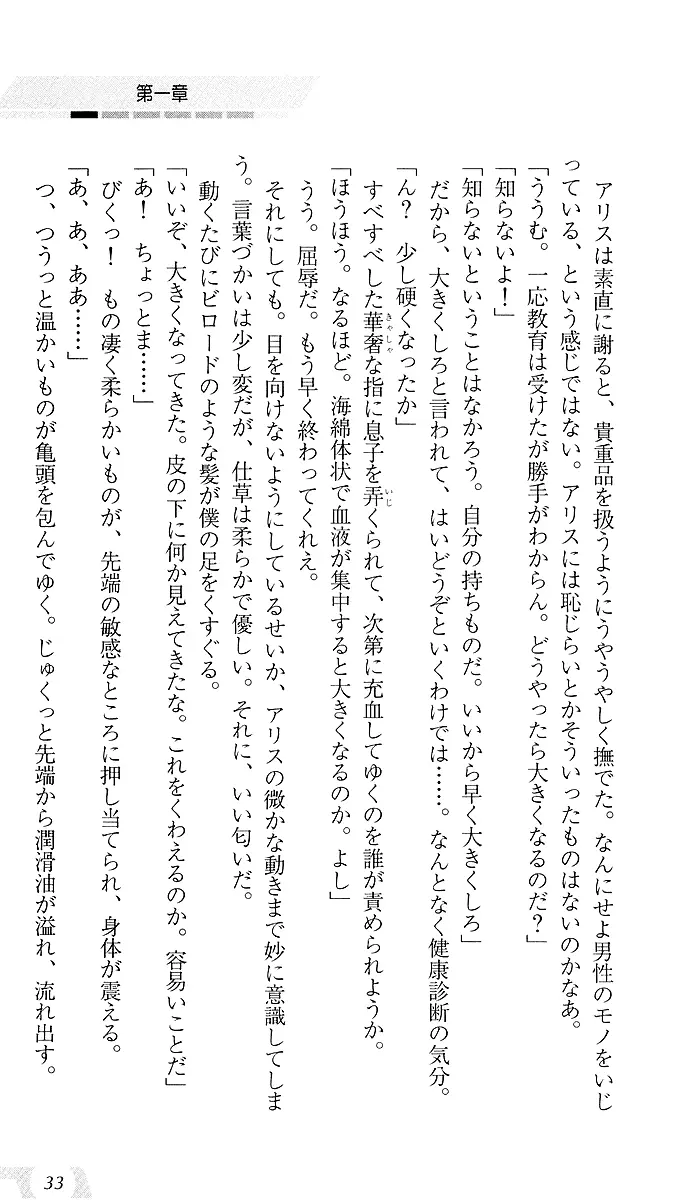 第一章
アリスは素直に謝ると、貴重品を扱うようにうやうやしく撫でた。なんにせよ男性のモノをいじ
っている、という感じではない。アリスには恥じらいとかそういったものはないのかなあ。
「ううむ。一応教育は受けたが勝手がわからん。どうやったら大きくなるのだ？」
「知らないよ！」
「知らないということはなかろう。自分の持ちものだ。いいから早く大きくしろ」
だから、大きくしろと言われて、はいどうぞといくわけでは……。なんとなく健康診断の気分。
「ん？　少し硬くなったか」
すべすべした華奢な指に息子を弄くられて、次第に充血してゆくのを誰が責められようか。
きゃしゃ
いじ
「ほうほう。なるほど。海綿体状で血液が集中すると大きくなるのか。よし」
うう。屈辱だ。もう早く終わってくれえ。
それにしても。目を向けないようにしているせいか、アリスの微かな動きまで妙に意識してしま
う。言葉づかいは少し変だが、仕草は柔らかで優しい。それに、いい匂いだ。
動くたびにビロードのような髪が僕の足をくすぐる。
「いいぞ、大きくなってきた。皮の下に何か見えてきたな。これをくわえるのか。容易いことだ」
「あ！　ちょっとま……」
びくっ！　もの凄く柔らかいものが、先端の敏感なところに押し当てられ、身体が震える。
「あ、あ、ああ……」
つ、つうっと温かいものが亀頭を包んでゆく。じゅくっと先端から潤滑油が溢れ、流れ出す。
33